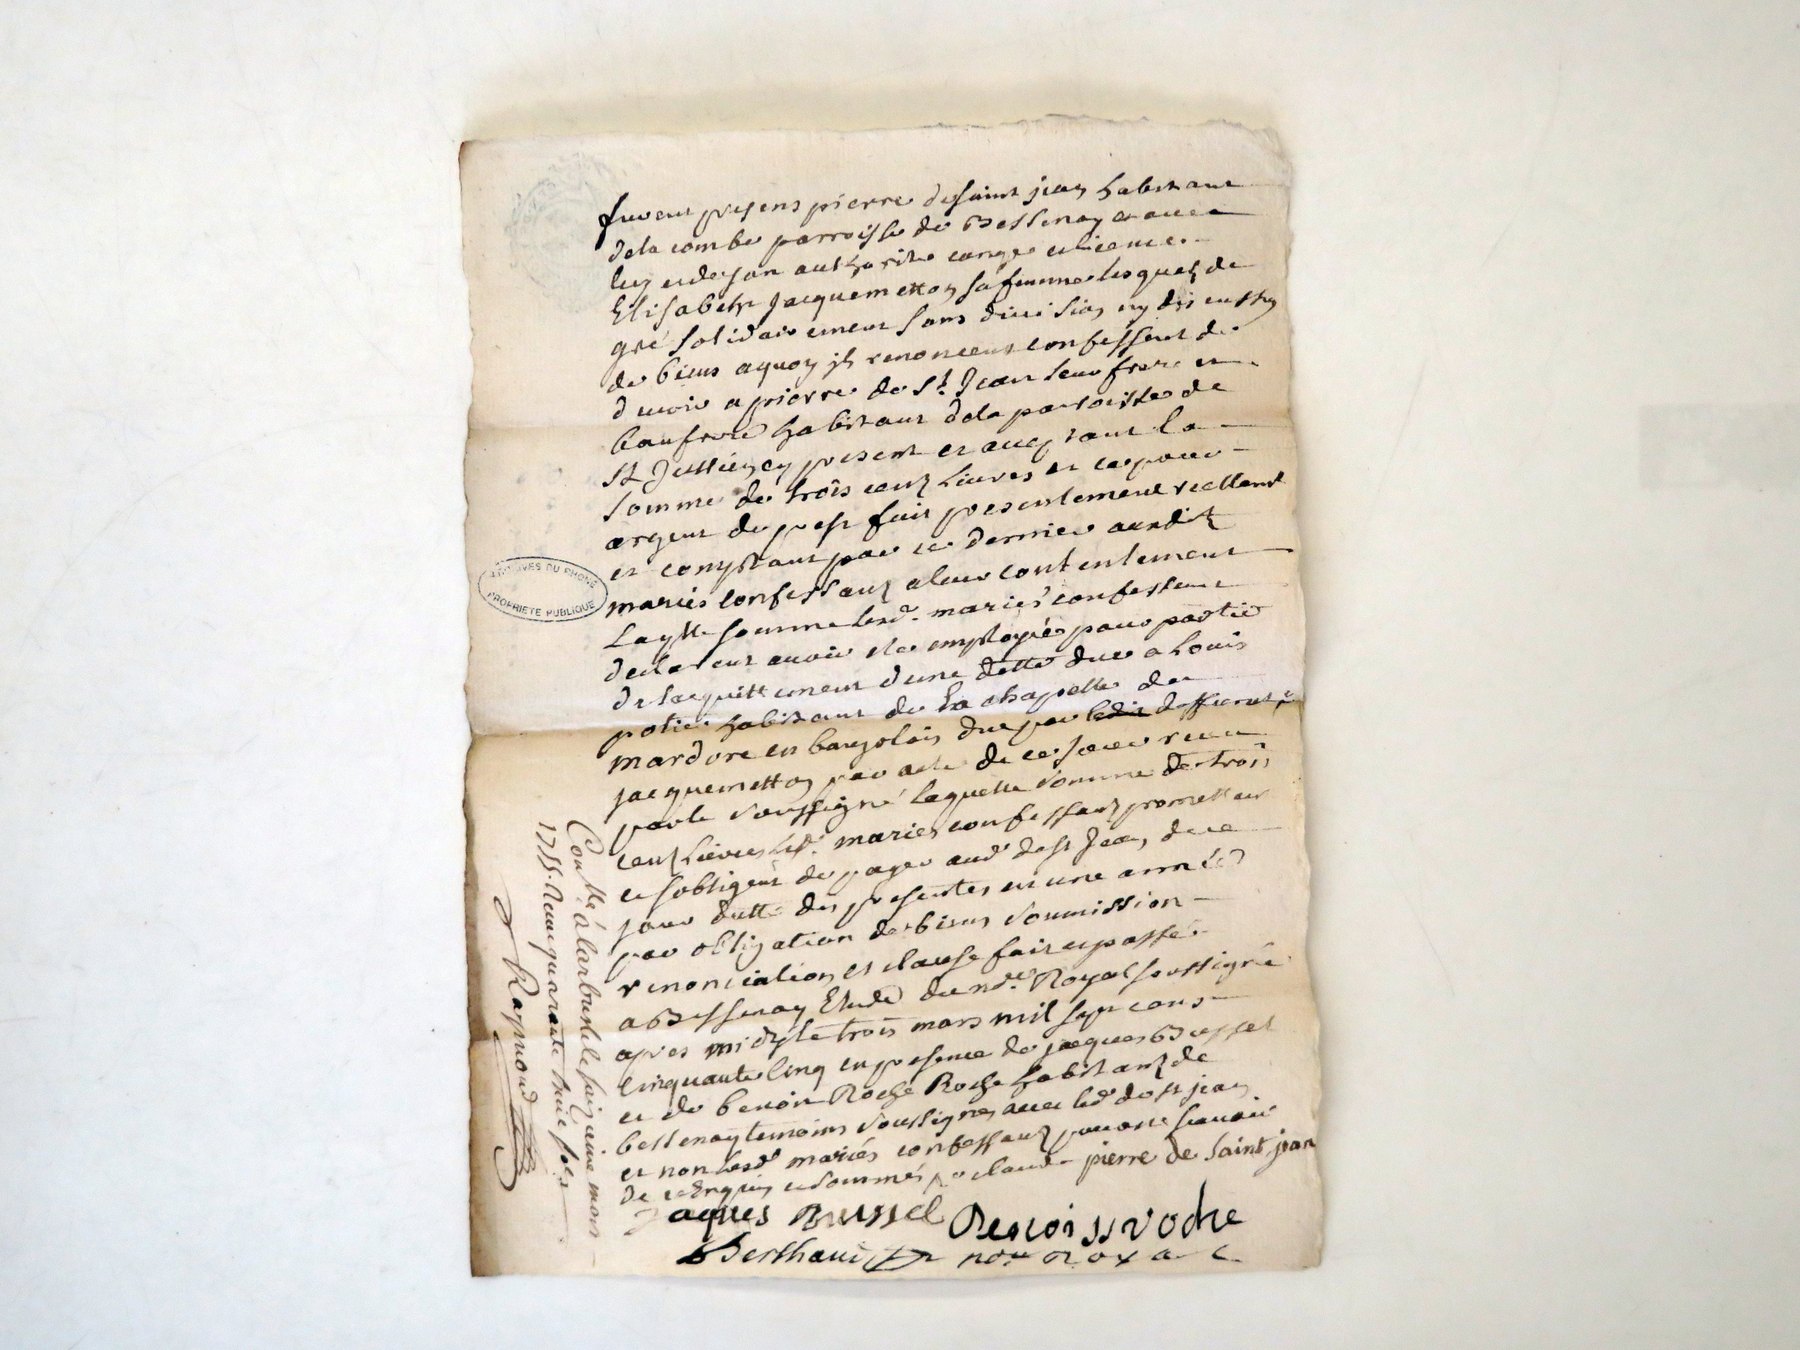 furent presens pierre de saint jean habitant
dela combe parroisse de Bessenay et avec
luy et de son authorité congé et licence
Elisabeth Jacquemetton sa femme lesquels de
gré solidairement sans division ny discussion
de biens a quoy ils renoncent confessent de
devoir a pierre de St. Jean leur frere et
beaufrere habitant dela parroisse de
St present et acceptant la
somme de trois cens livres et ce pour
argent de prest fait presentement reellement
et comptant par ce dernier auxdits
mariés confessants a leur contentement
Laqlle somme lesd. mariés confessants
declarent avoir été employée pour partie
de lacquittement d'une dette due a Louis
habitant de La chapelle de
mardore en baujolois due par deffunt
jacquemetton par acte de ce jour receu
par le soussigné laquelle somme de trois
cens livres lesd. mariés confessants promettent
et sobligent de payer aud. de St Jean de ce
jour datte des presentes en une année
par obligation de biens soumission
renonciation et clause fait et passé
a Bessenay Etude du nore. Royal soussigné
apres midy le trois mars mil sept cens
cinquante cinq en presence de jacques Bussel
et de benoit Roche Roche habitants de
bessenay temoins soussignes avec led de st jean
et non lesd mariés confessants pour ne scavoir
de ce Enquis et sommés pierre de saint jean
jaques Bussel Benoist roche
Berthaud nore royal
Con.lé à larbresle le seizieme mars
1755. Reçu quarante huit sols
Raymond
ARCHIVES DU RHONE
PROPRIETE PUBLIQUE